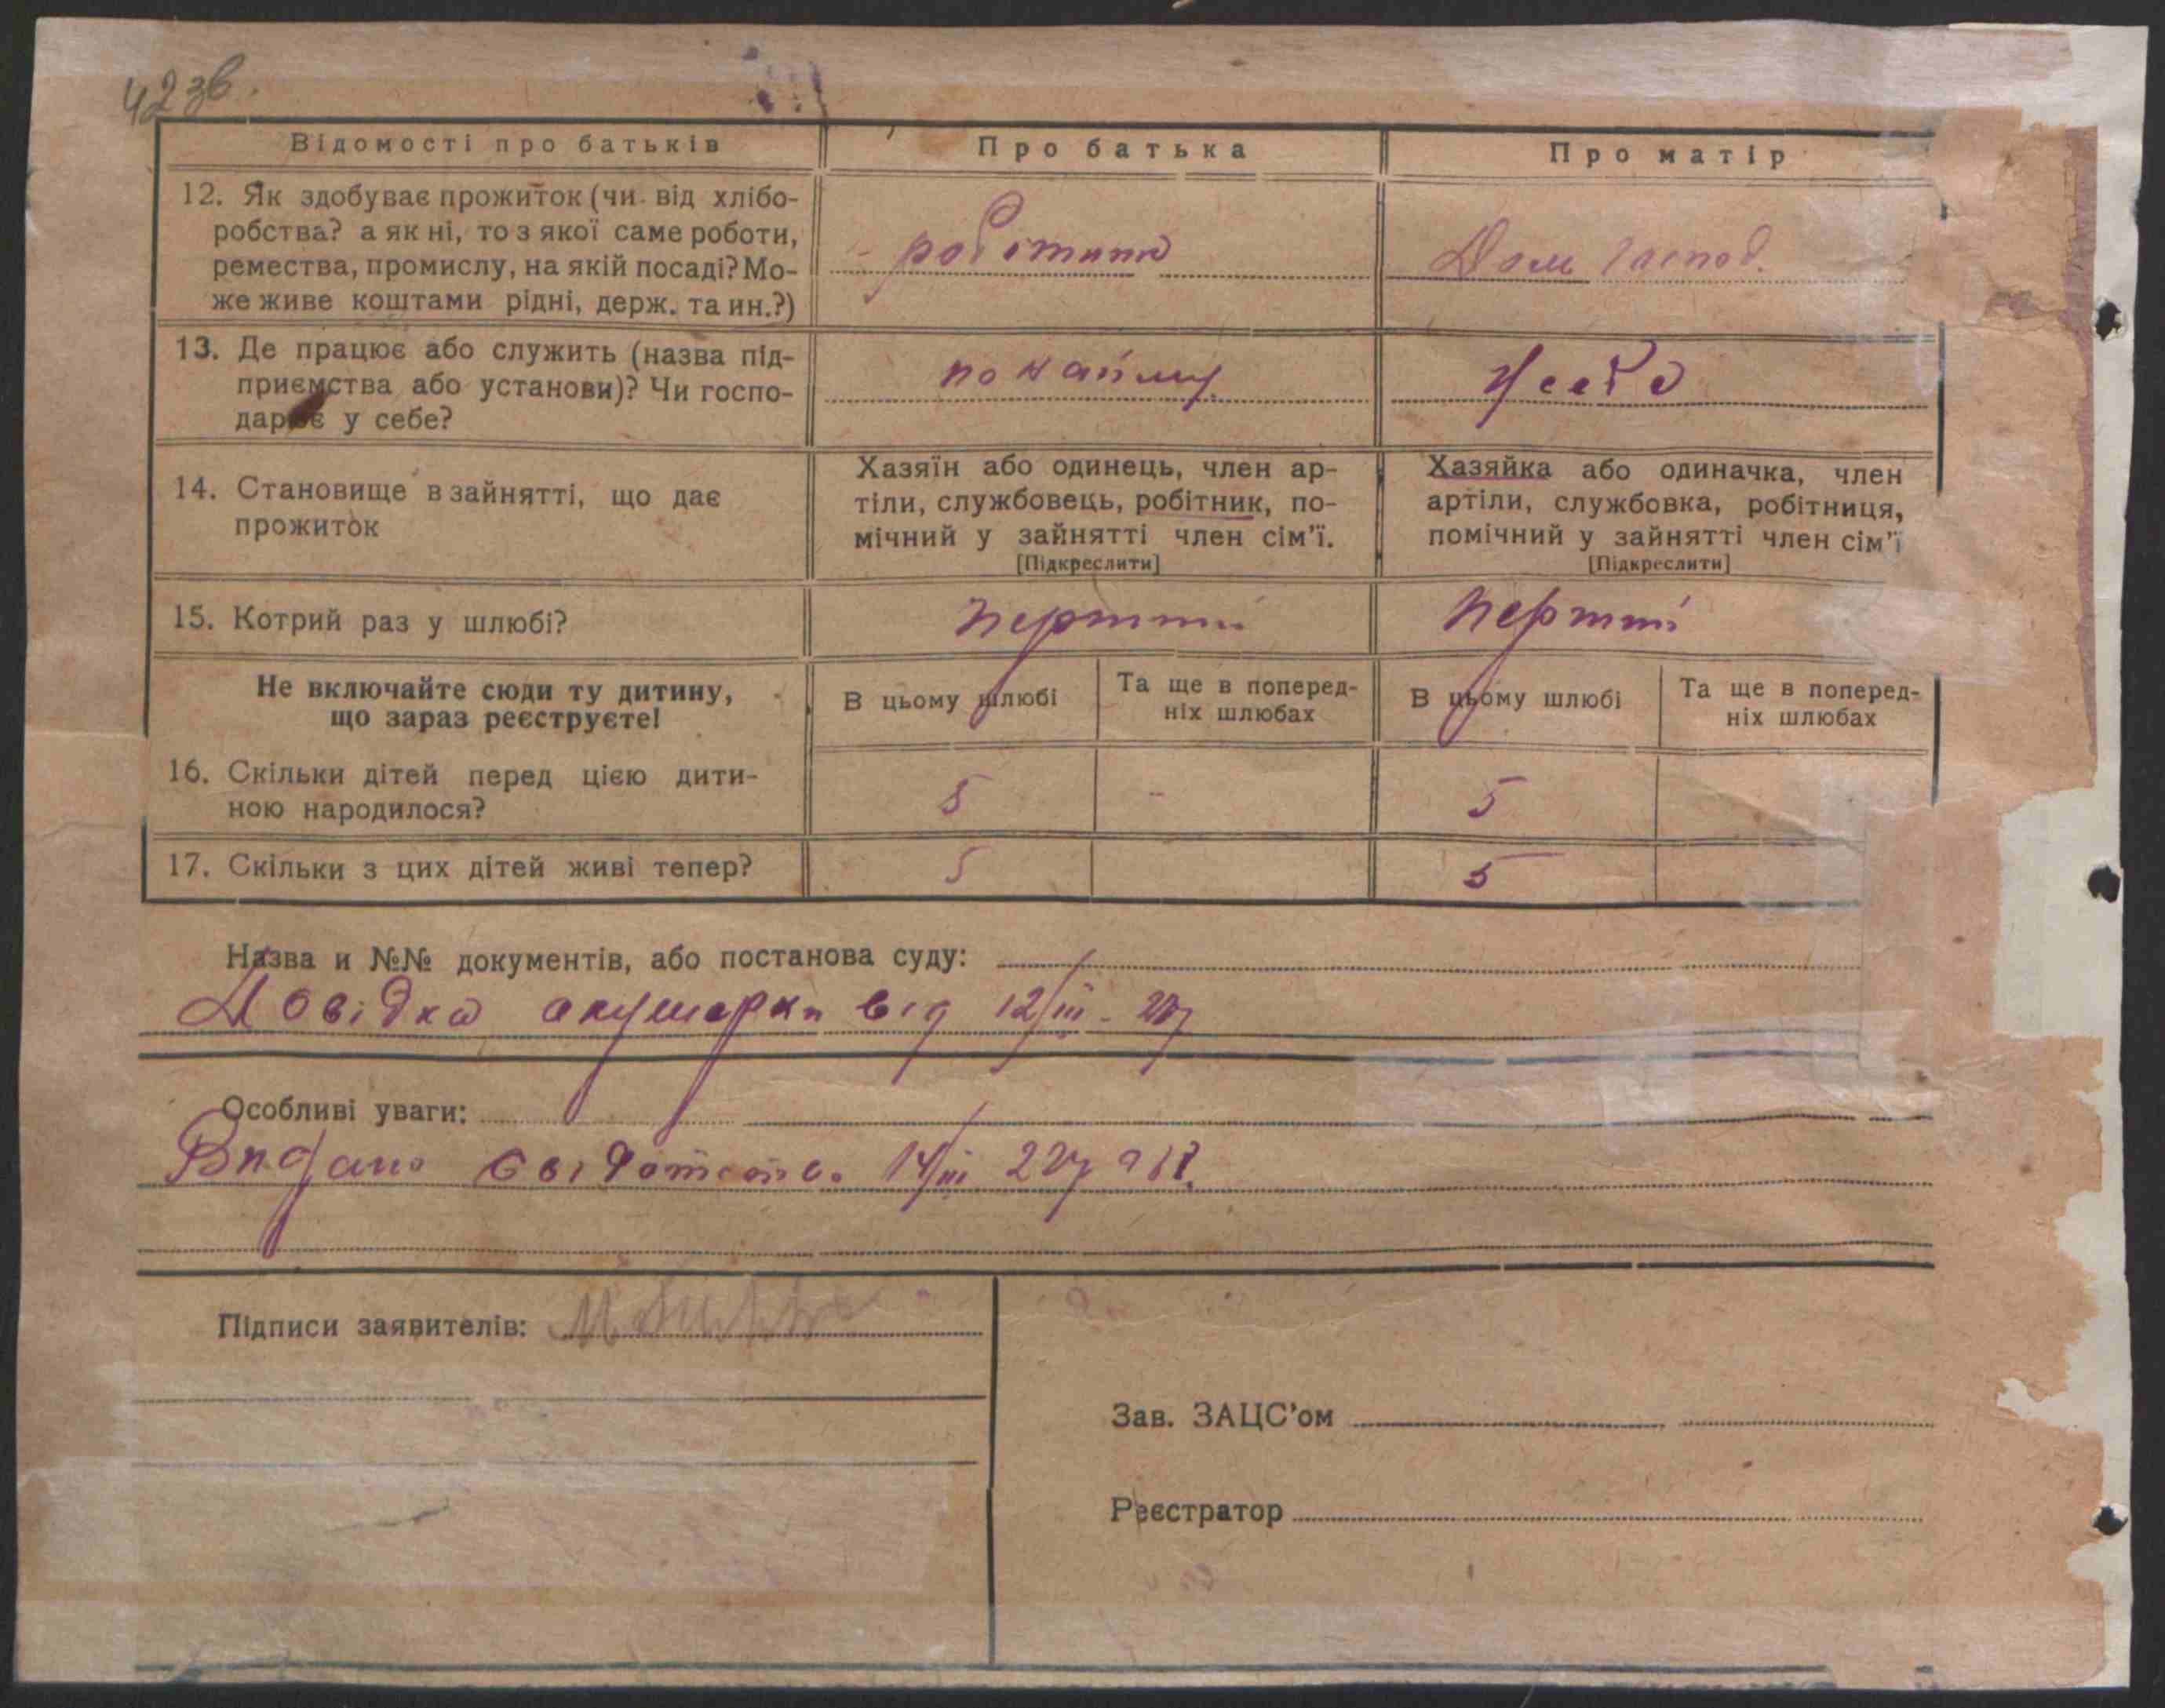 42 зв.
Відомості про батьків
Про батька
Про матір
12. Як здобуває прожиток (чи від хлібо-
робства? а як ні, то з якої саме роботи,
ремества, промислу, на якій посаді? Мо-
же живе коштами рідні, держ. та ин.?)
робітник
Дом господ.
13. Де працює або служить (назва під-
приємства або установи)? Чи госпо-
дарює у себе?
по найму
У себе
14. Становище в зайнятті, що дає
прожиток
Хазяїн або одинець, член ар-
тіли, службовець, робітник, по-
мічний у зайнятті член сім'ї.
[Підкреслити]
Хазяйка або одиначка, член
артіли, службовка, робітниця,
помічний у зайнятті член сім'ї
[Підкреслити]
15. Котрий раз у шлюбі?
перший
перший
Не включайте сюди ту дитину,
що зараз реєструєте!
В цьому шлюбі
Та ще в поперед-
ніх шлюбах
В цьому шлюбі
Та ще в поперед-
ніх шлюбах
16. Скільки дітей перед цією дити-
ною народилося?
5
-
5
17. Скільки з цих дітей живі тепер?
5
5
Назва и №№ документів, або постанова суду:
Довідка акушерки від 12/III
Особливі уваги:
Видано свідотство 14/III
Підписи заявителів:
Зав. ЗАЦС'ом
Реєстратор